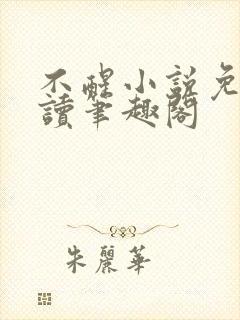 不醒小説免
讀筆趣閣
朱麗華